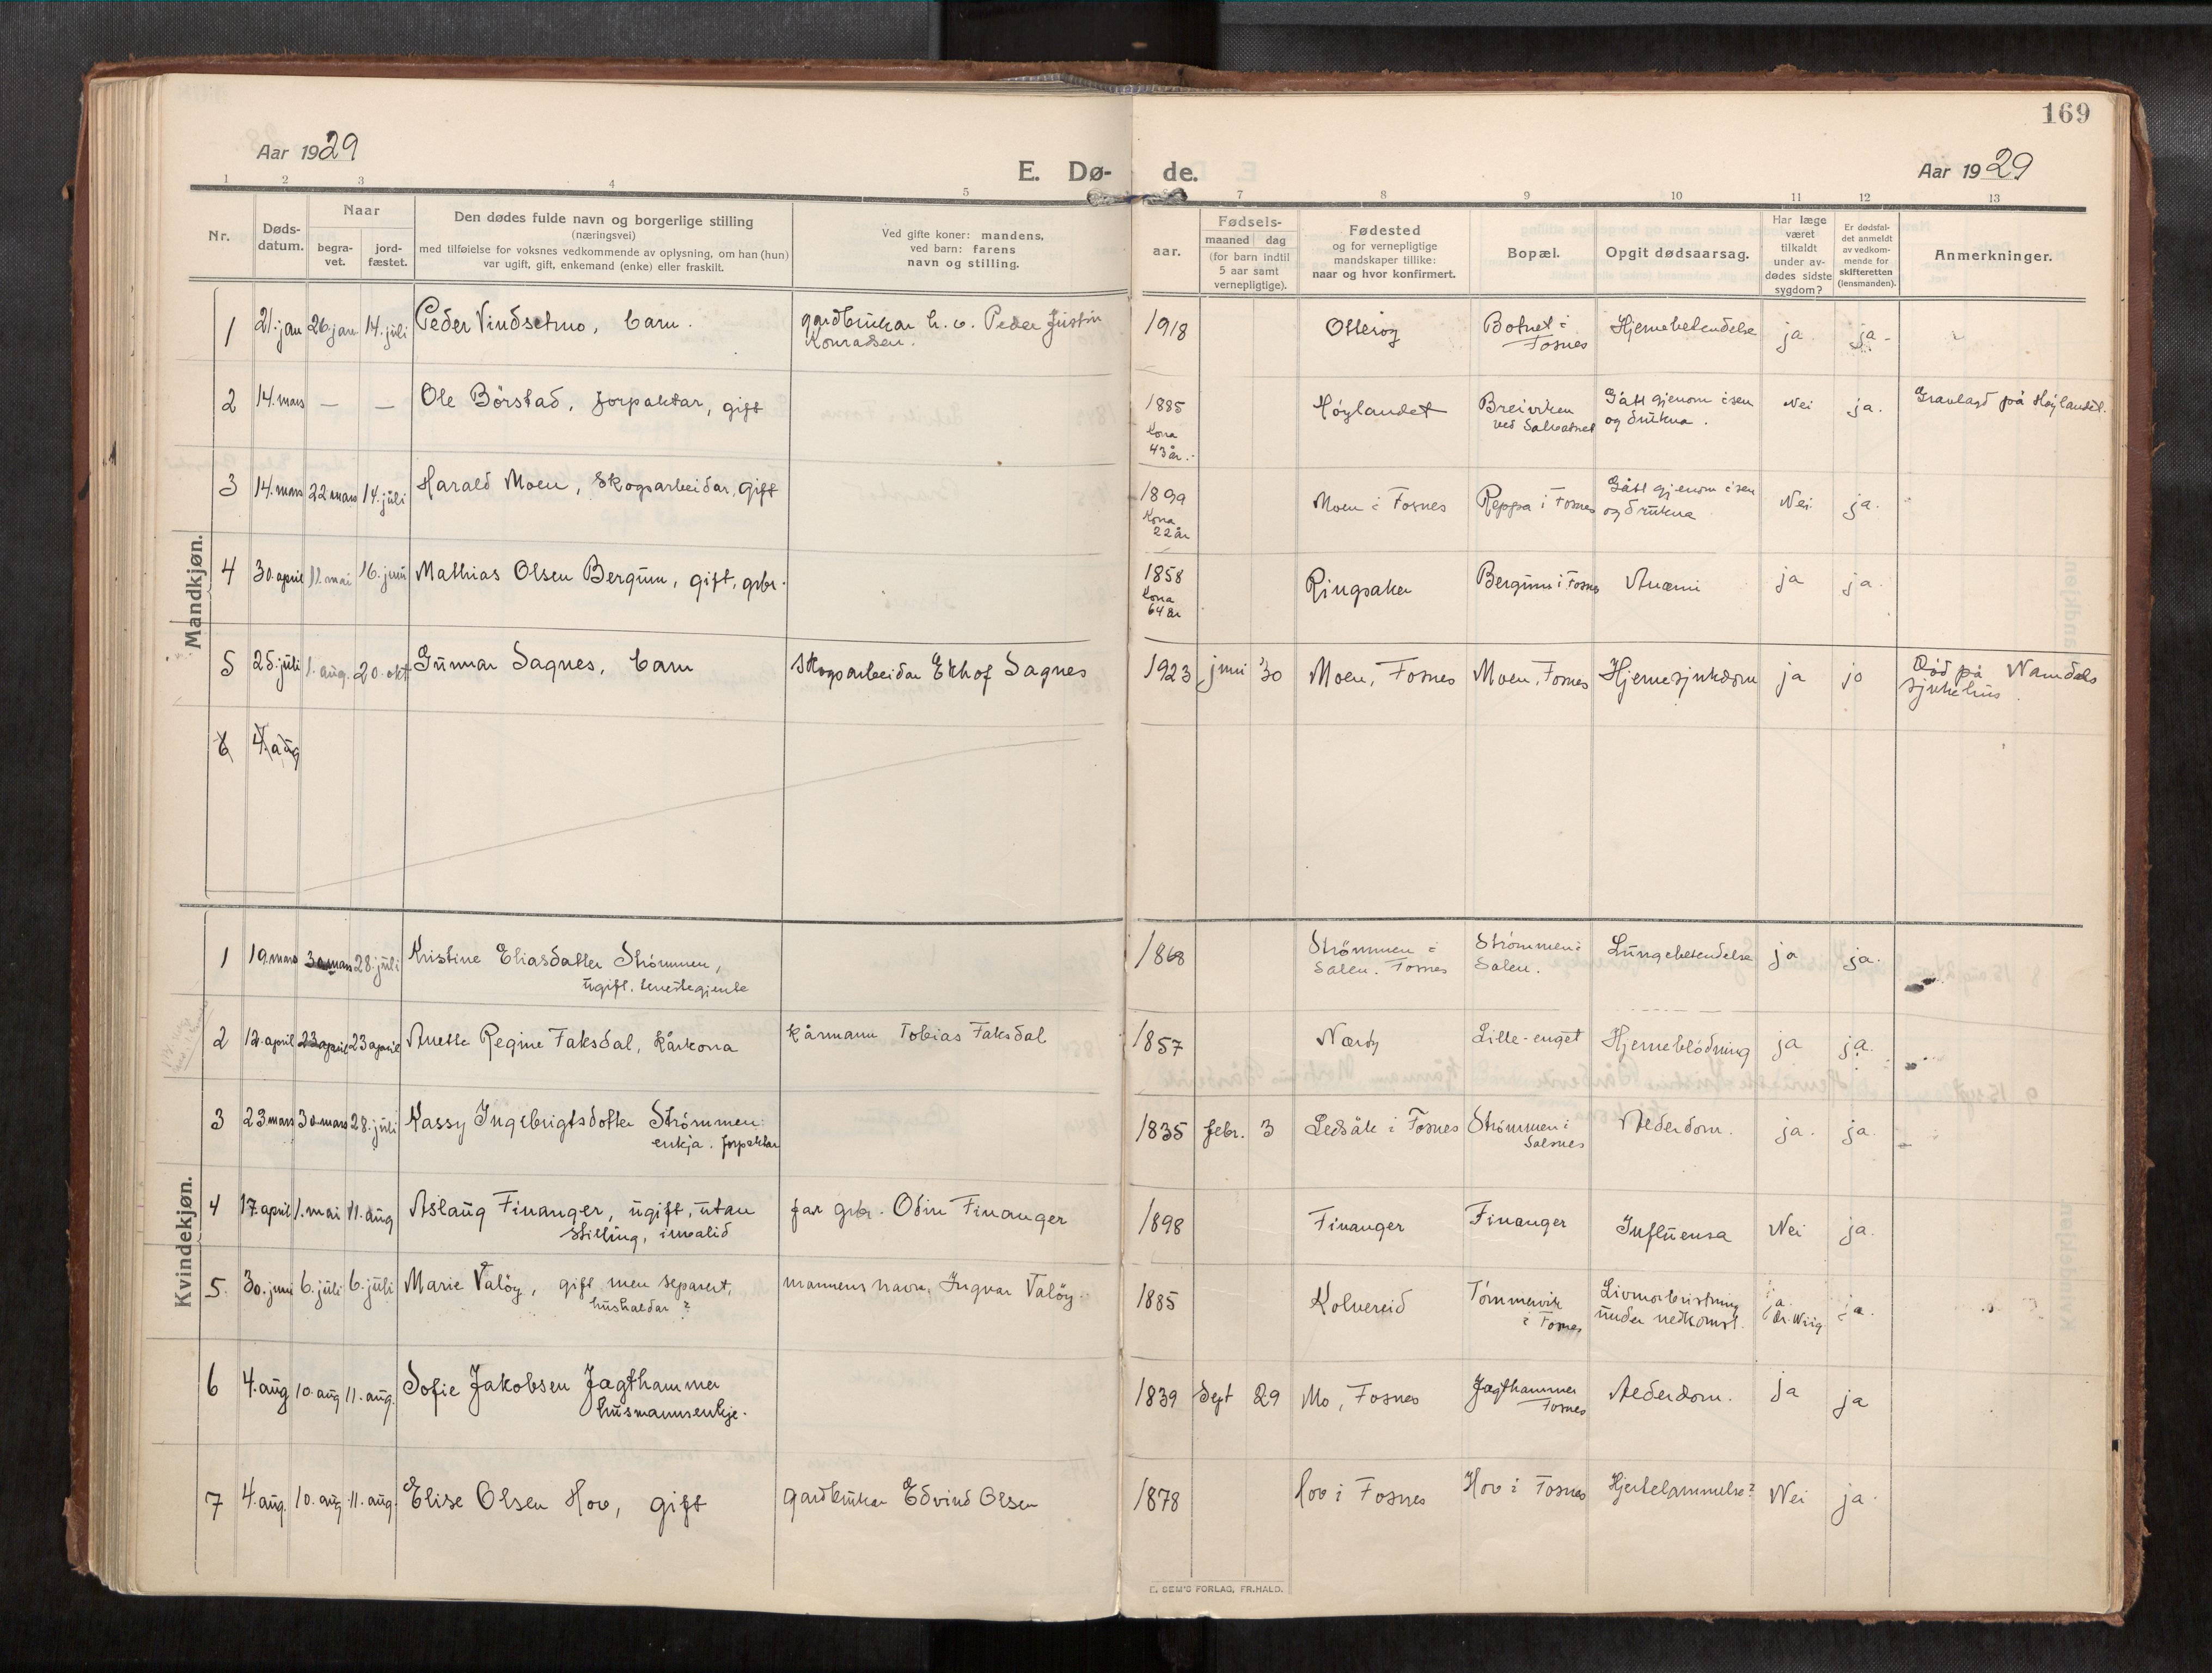 169
Aar 1929
E. Dø-
de.
Aar 1929
1 2 3 4 5 7 8 9 10 11 12 13
Nr.
Døds-
datum.
Naar
begra-
vet.
jord-
fæstet.
Den dødes fulde navn og borgerlige stilling
(næringsvei)
med tilføielse for voksnes vedkommende av oplysning, om han (hun)
var ugift, gift, enkemand (enke) eller fraskilt.
Ved gifte koner: mandens,
ved barn: farens
navn og stilling.
aar.
Fødsels-
maaned dag
(for barn indtil
5 aar samt
vernepligtige).
Fødested
og for vernepligtige
mandskaper tillike:
naar og hvor konfirmert.
Bopæl.
Opgit dødsaarsag.
Har læge
været
tilkaldt
under av-
dødes sidste
sygdom?
Er dødsfal-
det anmeldt
av vedkom-
mende for
skifteretten
(lensmanden).
Anmerkninger.
Mandkjøn.
1 21. jan 26. jan 14. juli Peder Vindsetmo, barn. gardbrukar h. v. Peder Justin
Konradsen.
1918 Otterøy Botnet i
Fosnes
Hjernebetendelse ja ja
2 14. mars — — Ole Börstad, forpaktar, gift
1885
Kona
43 år.
Höylandet Breiviken
ved Salvatnet
Gått gjenom isen
og drukna.
Nei ja. Gravlagd på Höylandet.
3 14. mars 22 mars 14. juli Harald Moen, skogsarbeidar, gift
1899
Kona
22 år
Moen i Fosnes Reppa i Fosnes
Gått gjenom isen
og drukna
Nei. ja.
4 30. april 11. mai 16. juni Mathias Olsen Bergum, gift, gbr.
1858
Kona
64 år
Ringsaker Bergum i Fosnes Anæmi ja ja.
5 25. juli 1. aug. 20. okt Gunnar Sagnes, barn skogsarbeidar Ekhof Sagnes
1923 juni 30 Moen, Fosnes Moen, Fosnes Hjernesjukdom ja jo Död på Namdals
sjukehus.
6 4. aug
Kvindekjøn.
1 19. mars 30 mars 28. juli Kristine Eliasdatter Strömmen,
ugift, tenestegjente
1868 Strömmen i
Salen. Fosnes
Strömmen i
Salen.
Lungebetendelse ja ja.
2 12. april 23 april 23 april Anette Regine Faksdal, kårkona kårmann Tobias Faksdal
1857 Næröy Lille-enget Hjerneblödning ja ja.
3 23 mars 30. mars 28. juli Kassy Ingebrigtsdotter Strömmen
enkja. forpaktar
1835 febr. 3 Ledsåle i Fosnes Strömmen i
Salsnes
Alderdom. ja. ja.
4 17. april 1. mai 11. aug Aslaug Finanger, ugift, utan
stilling, invalid
far gbr. Odin Finanger
1898 Finanger Finanger Influensa Nei ja.
5. 30. juni 6. juli 6. juli Marie Valöy, gift men separert,
hushaldar?
mannens navn, Ingvar Valöy.
1885 Kolvereid Tömmervik
i Fosnes
Livmorbristning
under nedkomst.
ja.
dr. Wiig
ja.
6 4. aug 10. aug 11. aug. Sofie Jakobsen Jagthammer
husmannsenkje.
1839 Sept 29 Mo, Fosnes Jagthammer
Fosnes
Alderdom. ja ja
7 4. aug. 10. aug 11. aug. Elise Olsen Hov, gift gardbrukar Edvind Olsen
1878 Hov i Fosnes Hov i Fosnes Hjertelammelse? Nei ja
E. SEM'S FORLAG, FR.HALD.